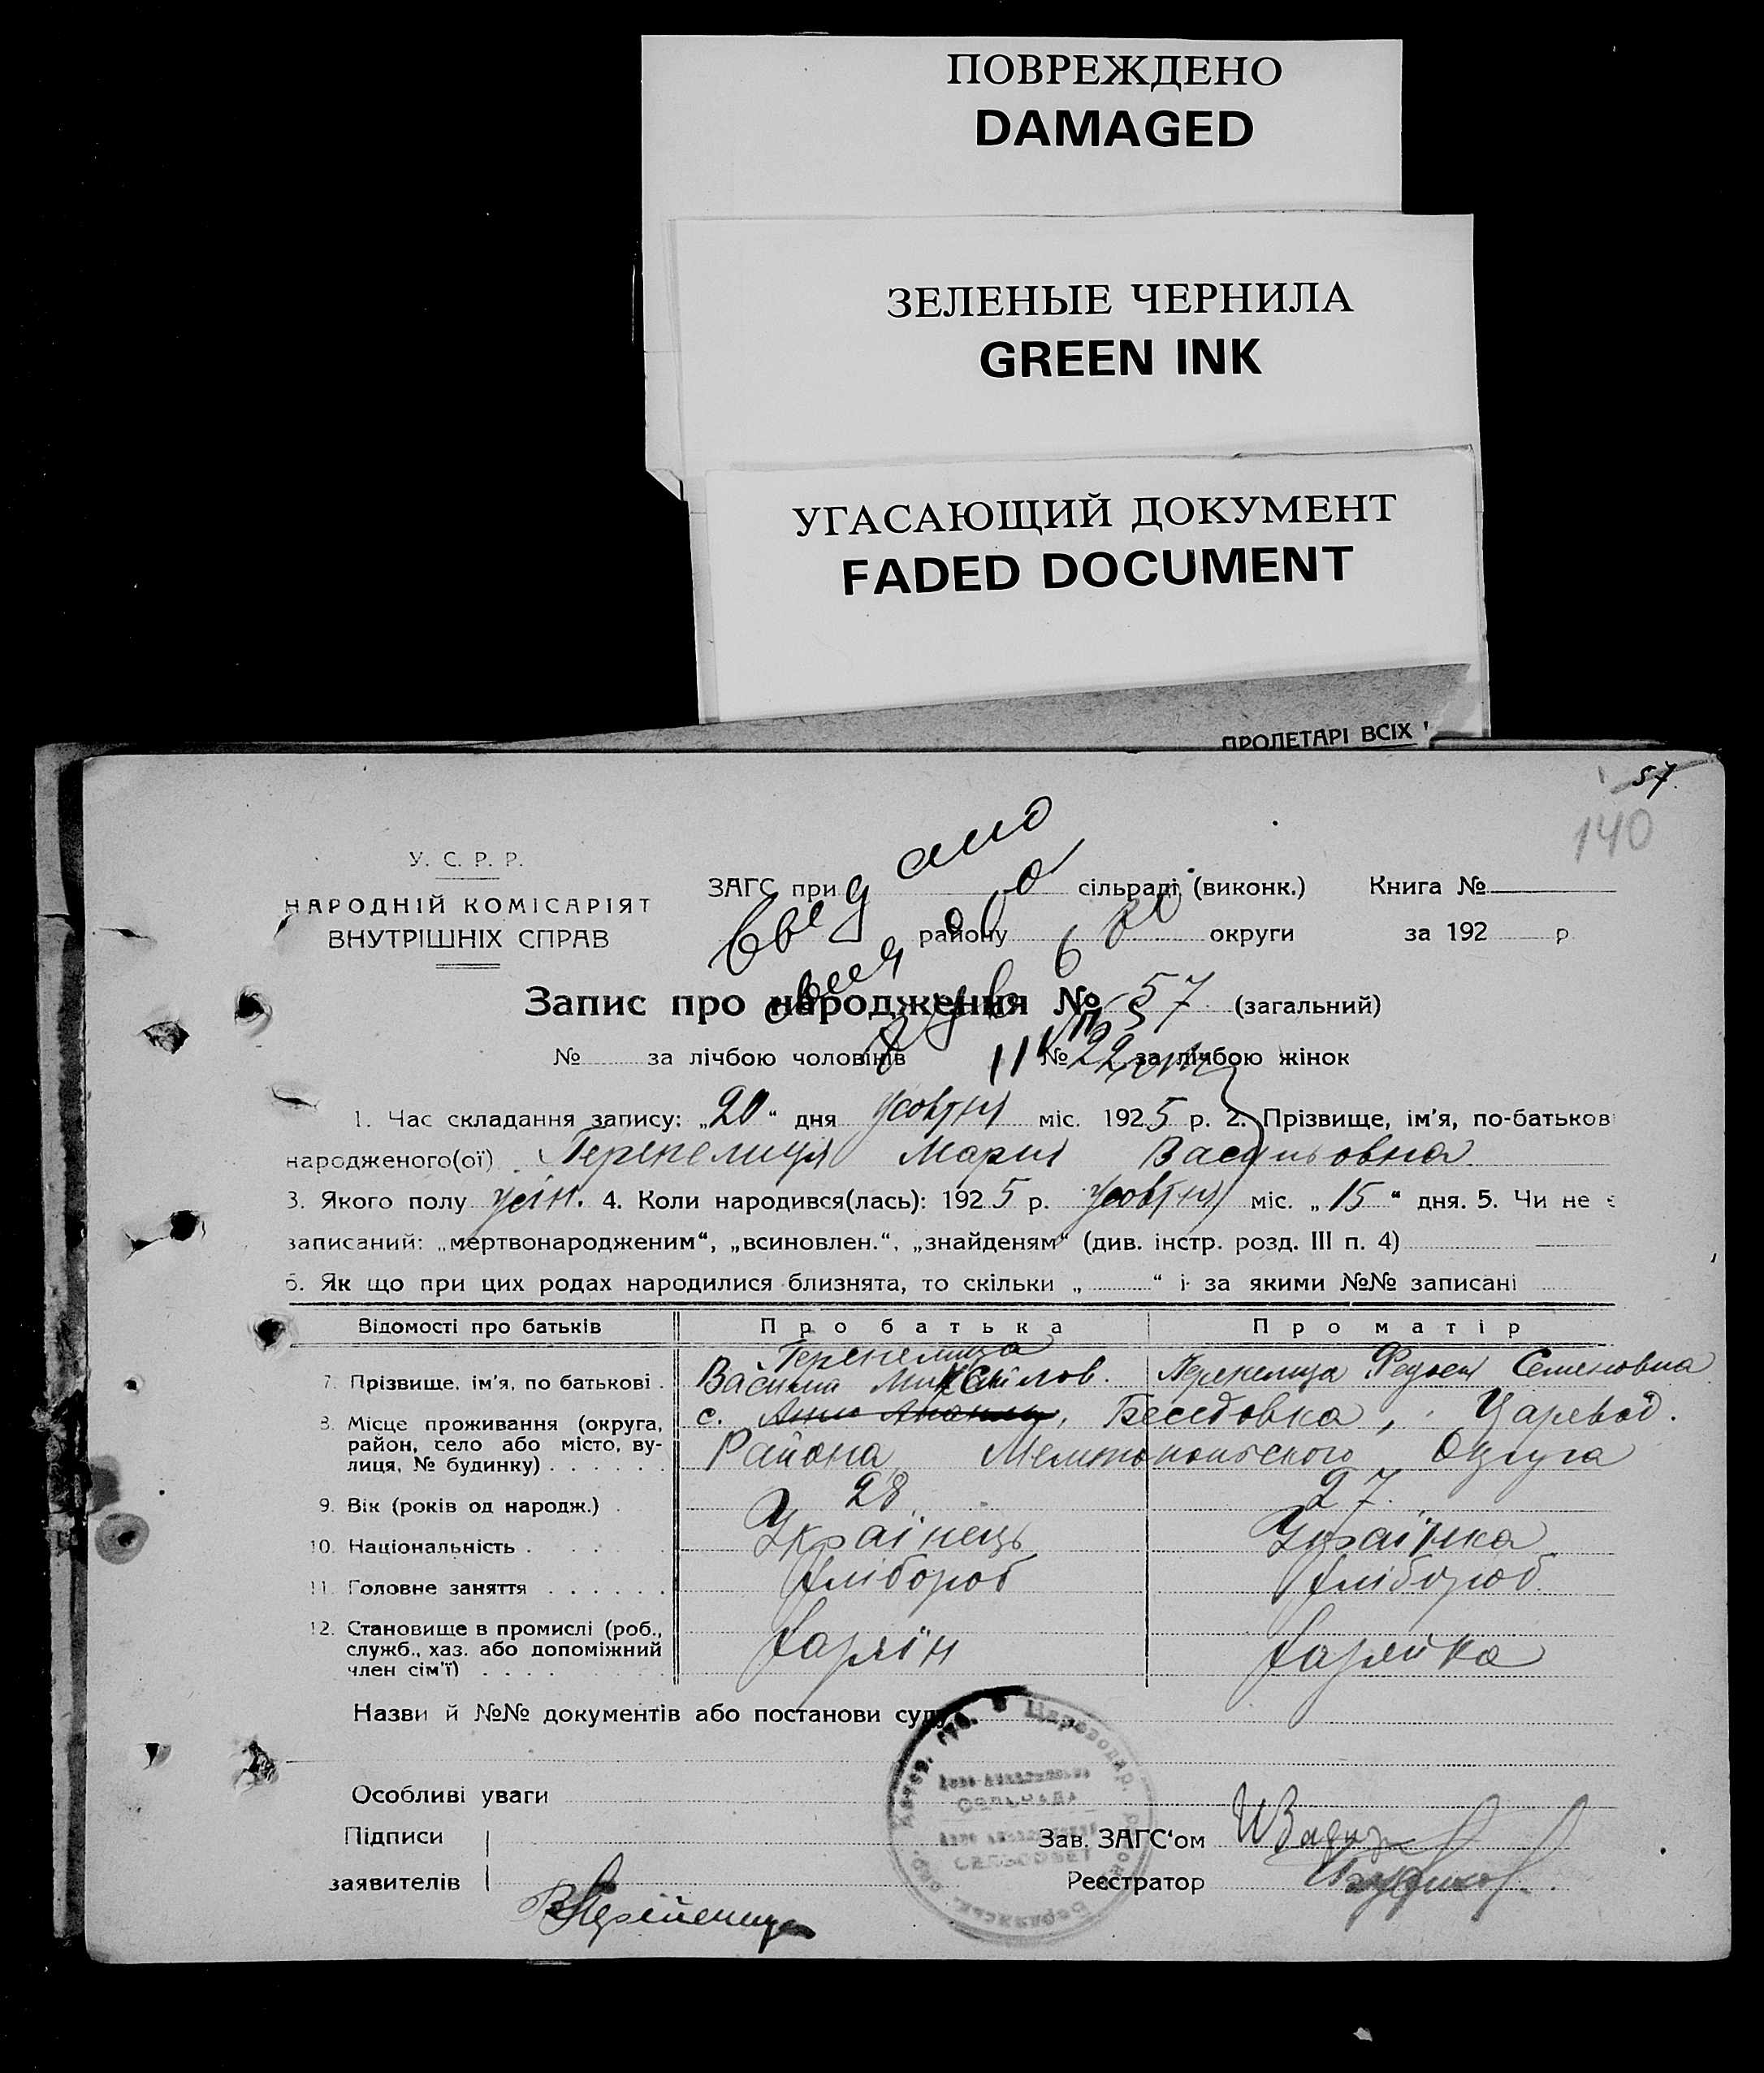 ПОВРЕЖДЕНО
DAMAGED
ЗЕЛЕНЫЕ ЧЕРНИЛА
GREEN INK
УГАСАЮЩИЙ ДОКУМЕНТ
FADED DOCUMENT
ПРОЛЕТАРІ ВСІХ
57.
140
У. С. Р. Р.
НАРОДНІЙ КОМІСАРІЯТ
ВНУТРІШНІХ СПРАВ
ЗАГС при сільраді (виконк.) Книга №
району округи за 192 р
Запис про народження № 57 (загальний)
№ за лічбою чоловіків № 22 за лічбою жінок
1. Час складання запису: „20“ дня жовтня міс. 1925 р. 2. Прізвище, ім’я, по-батьков
народженого(ої) Перепелиця Мария Васильовна
3. Якого полу жін. 4. Коли народився(лась): 1925 р. жовтня міс. „15“ дня. 5. Чи не є
записаний: „мертвонародженим“, „всиновлен.“, „знайденям“ (див. інстр. розд. III п. 4)
6. Як що при цих родах народилися близнята, то скільки „ “ і за якими №№ записані
Відомості про батьків Про батька Про матір
Перепелица
7. Прізвище, ім’я, по батькові . Василий Михайлов. Перепелица Федосья Семеновна
8. Місце проживання (округа, район, село або місто, вулиця, № будинку) . . . . . . с. Беседовка, Царевод.
Района Мелитопольского Округа
9. Вік (років од народж.) . 28 27.
10. Національність . . . . Українець Українка
11. Головне заняття . . . . . . Хлібороб Хлібороб
12. Становище в промислі (роб.,
служб., хаз. або допоміжний
член сім’ї) . . . . Хазяїн Хазяйка
Назви й №№ документів або постанови суду
Особливі уваги
Підписи
заявителів
Зав. ЗАГС‘ом
Реєстратор
СЕЛЬСОВЕТ